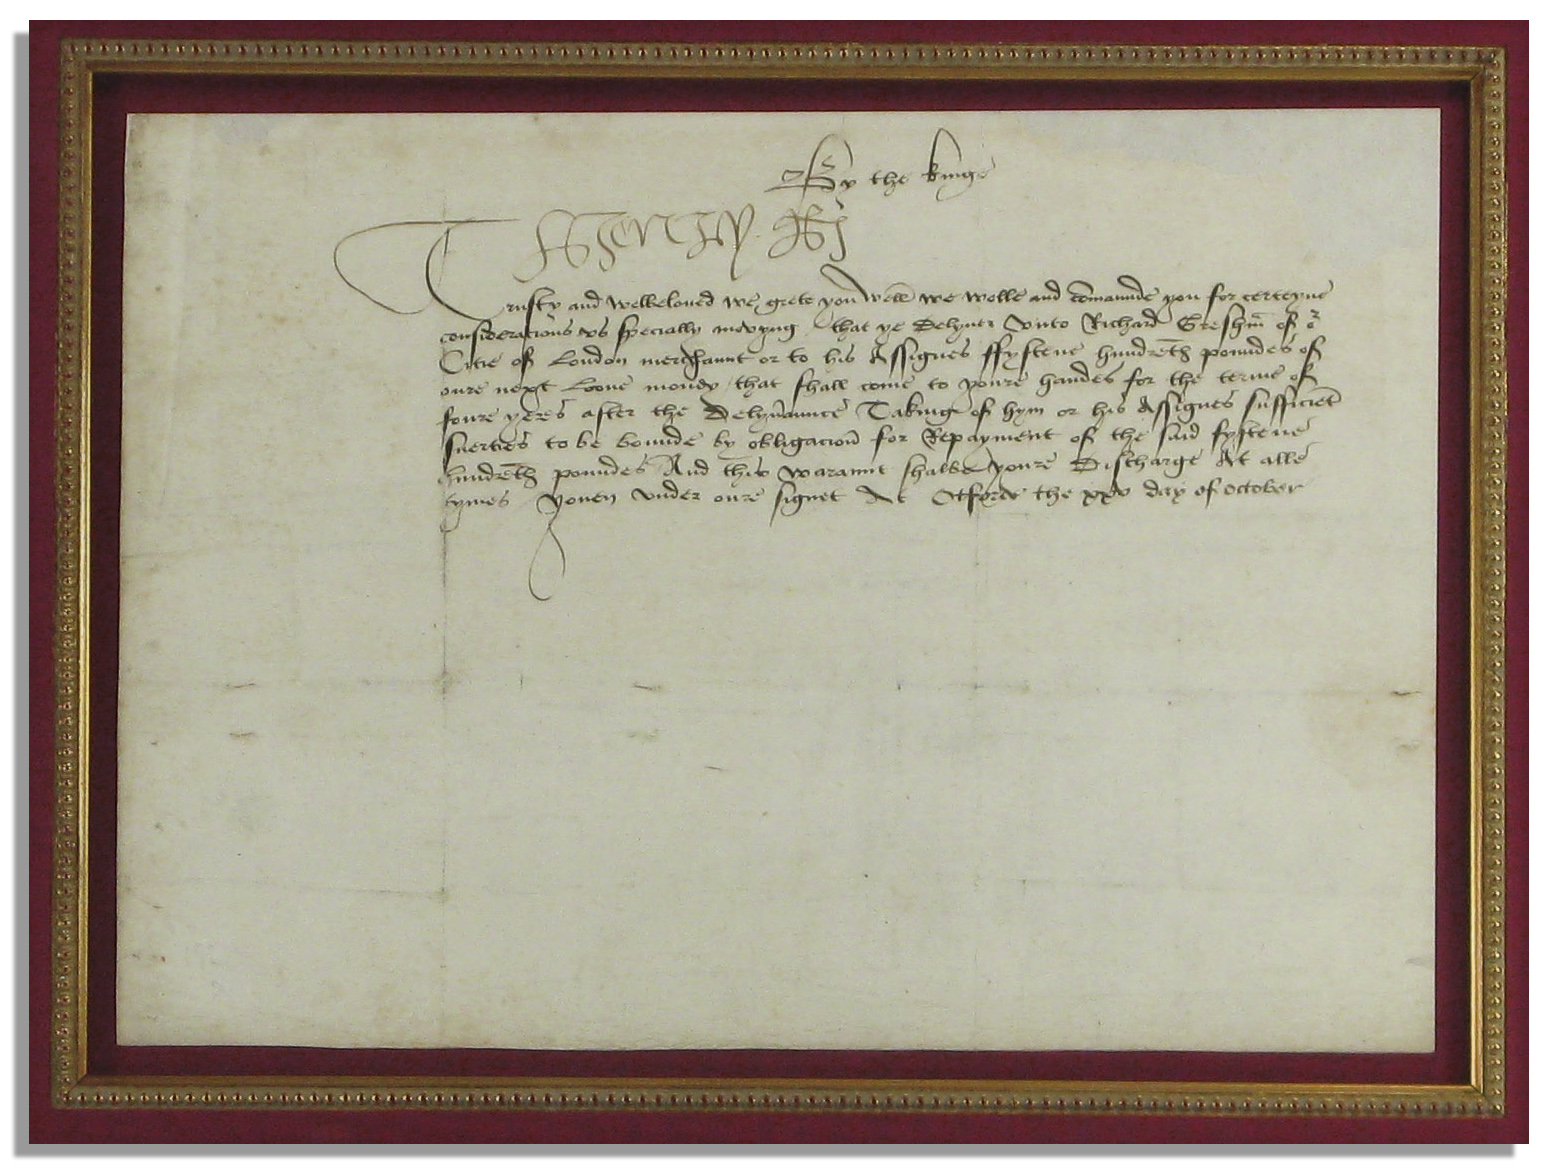 By the kinge
HENRY R
Trusty and welbeloued we grete you well we wolle and com̄aunde you for certeyne
consideracions vs specially mevyng that ye delyuer vnto Richard Greshm̄ of or
Citie of london merchaunt or to his Assignes ffyftene hundreth poundes of
oure next loone money that shall come to youre handes for the terme of
foure yeres after the delyu̾aunce Taking of hym or his Assignes sufficiēt
suerties to be bounde by obligacion̄ for Repayment of the said fyftene
hundreth poundes And this waraunt shalbe youre discharge At alle
tymes youen vnder oure signet At Otforde the xxv day of October